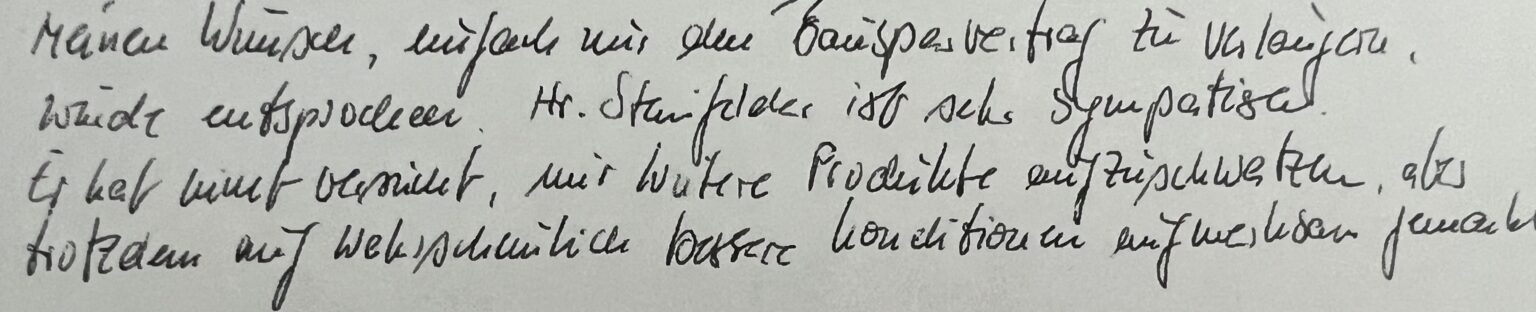 Meinen Wunsch, einfach nur den Bausparvertrag zu verlängern,
wurde entsprochen. Hr. Steinfelder ist sehr sympatisch.
Er hat nicht versucht, mir weitere Produkte aufzuschwatzen, aber
trotzdem auf wahrscheinlich bessere Konditionen aufmerksam gemacht